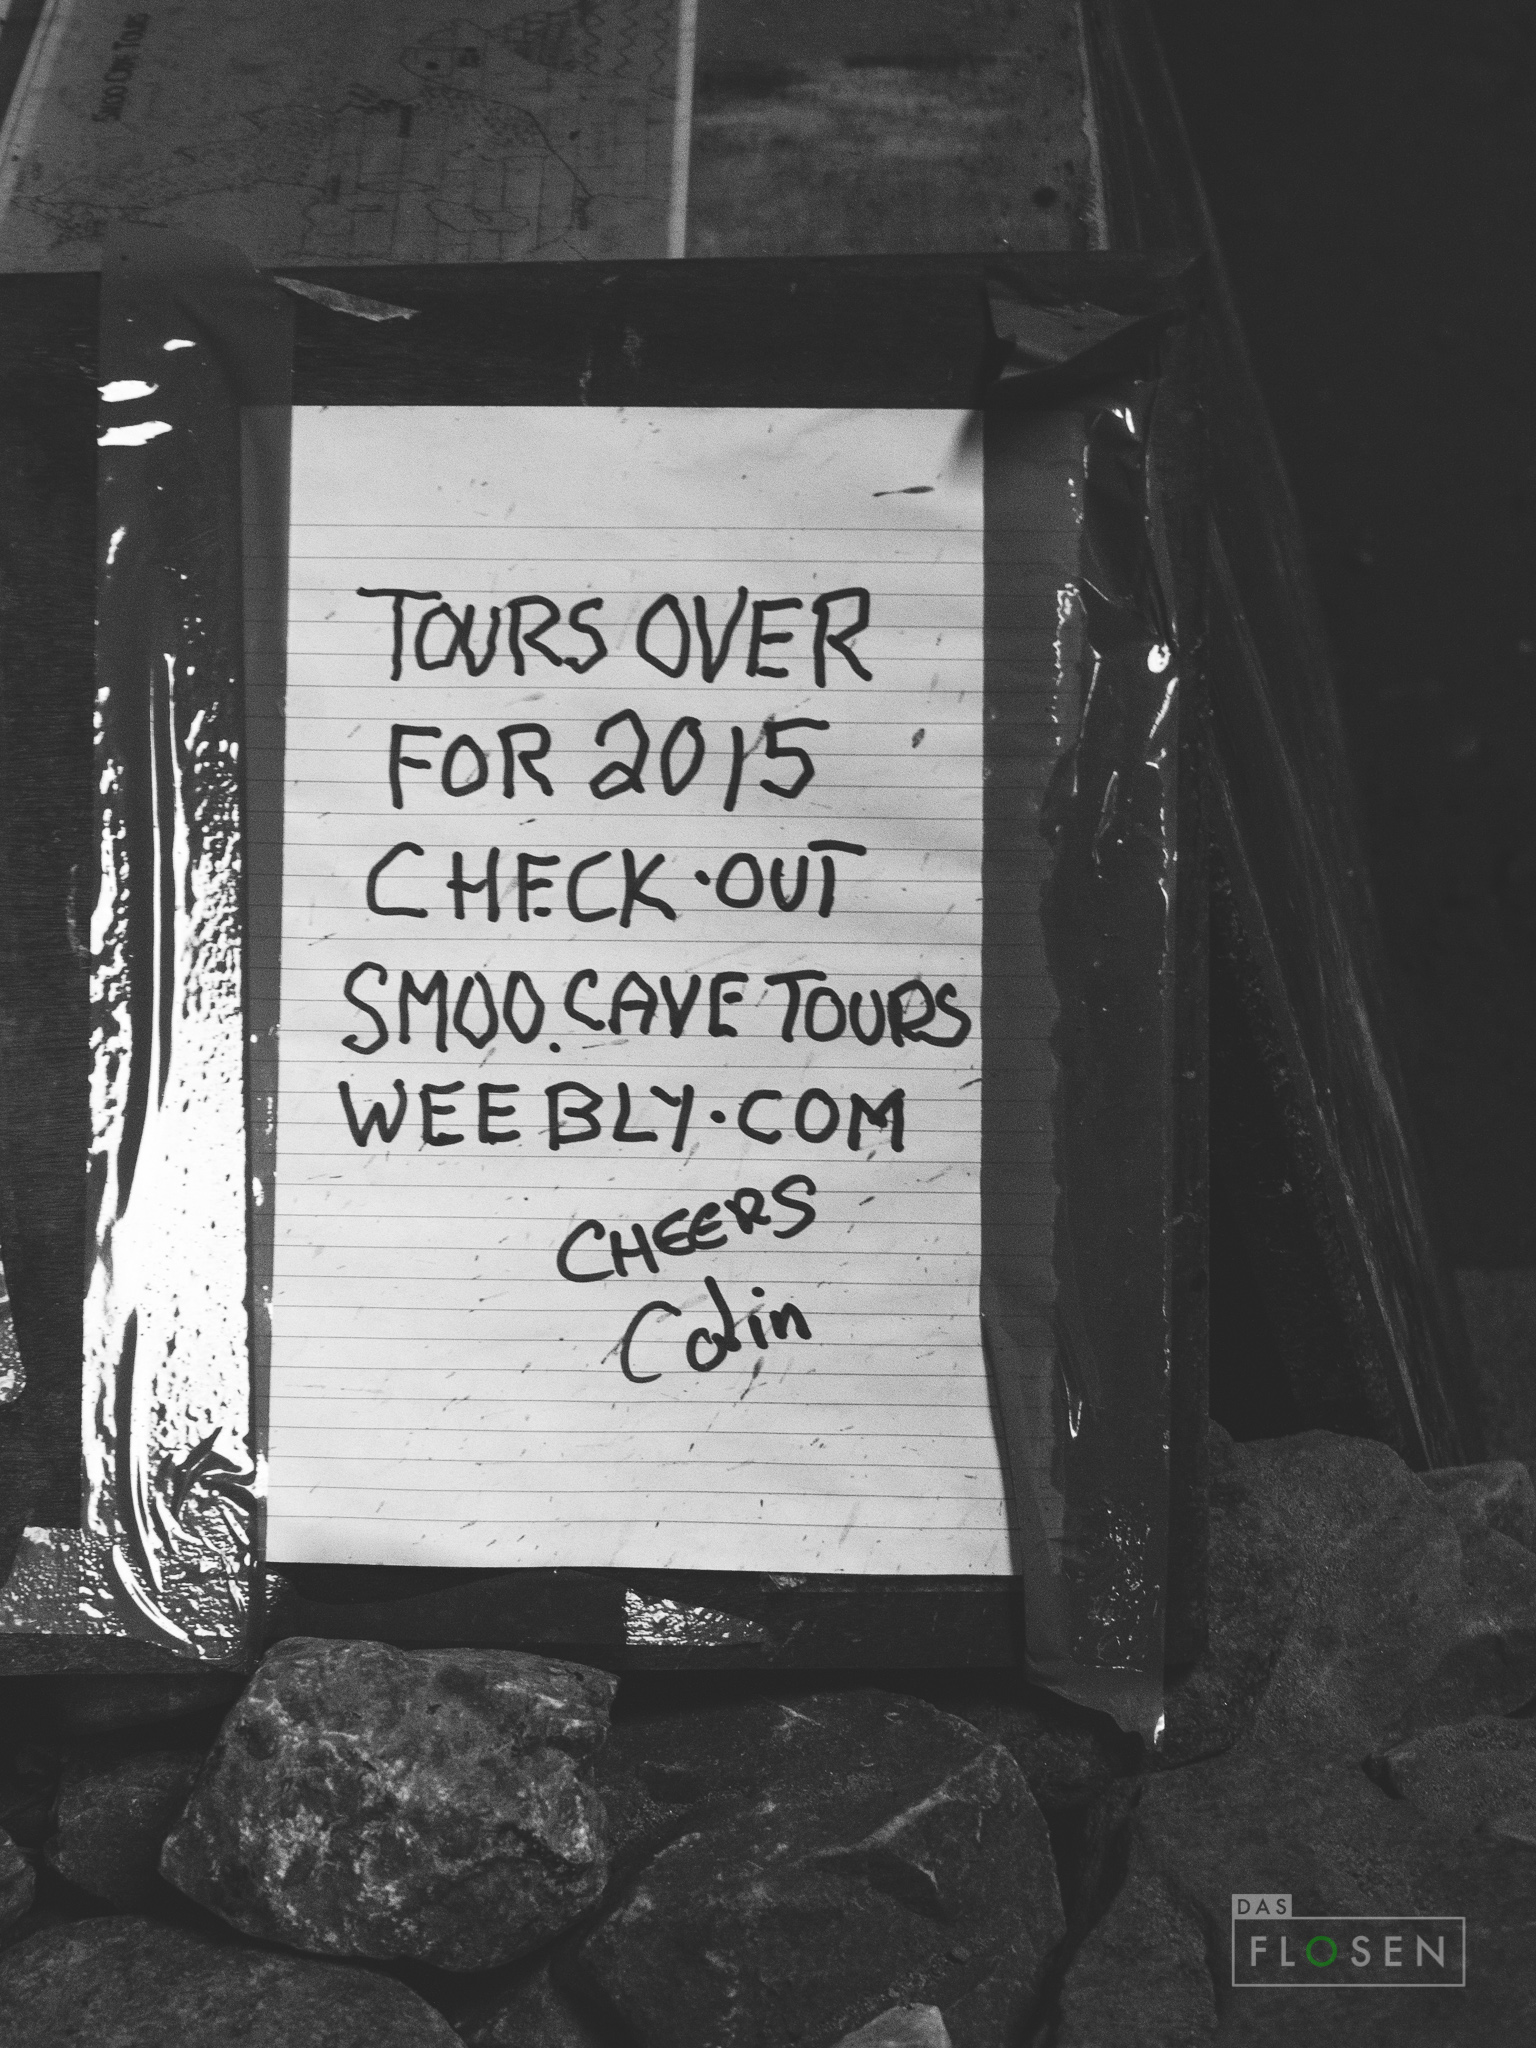 SMOO CAVE TOURS
TOURS OVER
FOR 2015
CHECK·OUT
SMOO.CAVE TOURS
WEEBLY.COM
CHEERS
Colin
DAS
FLOSEN